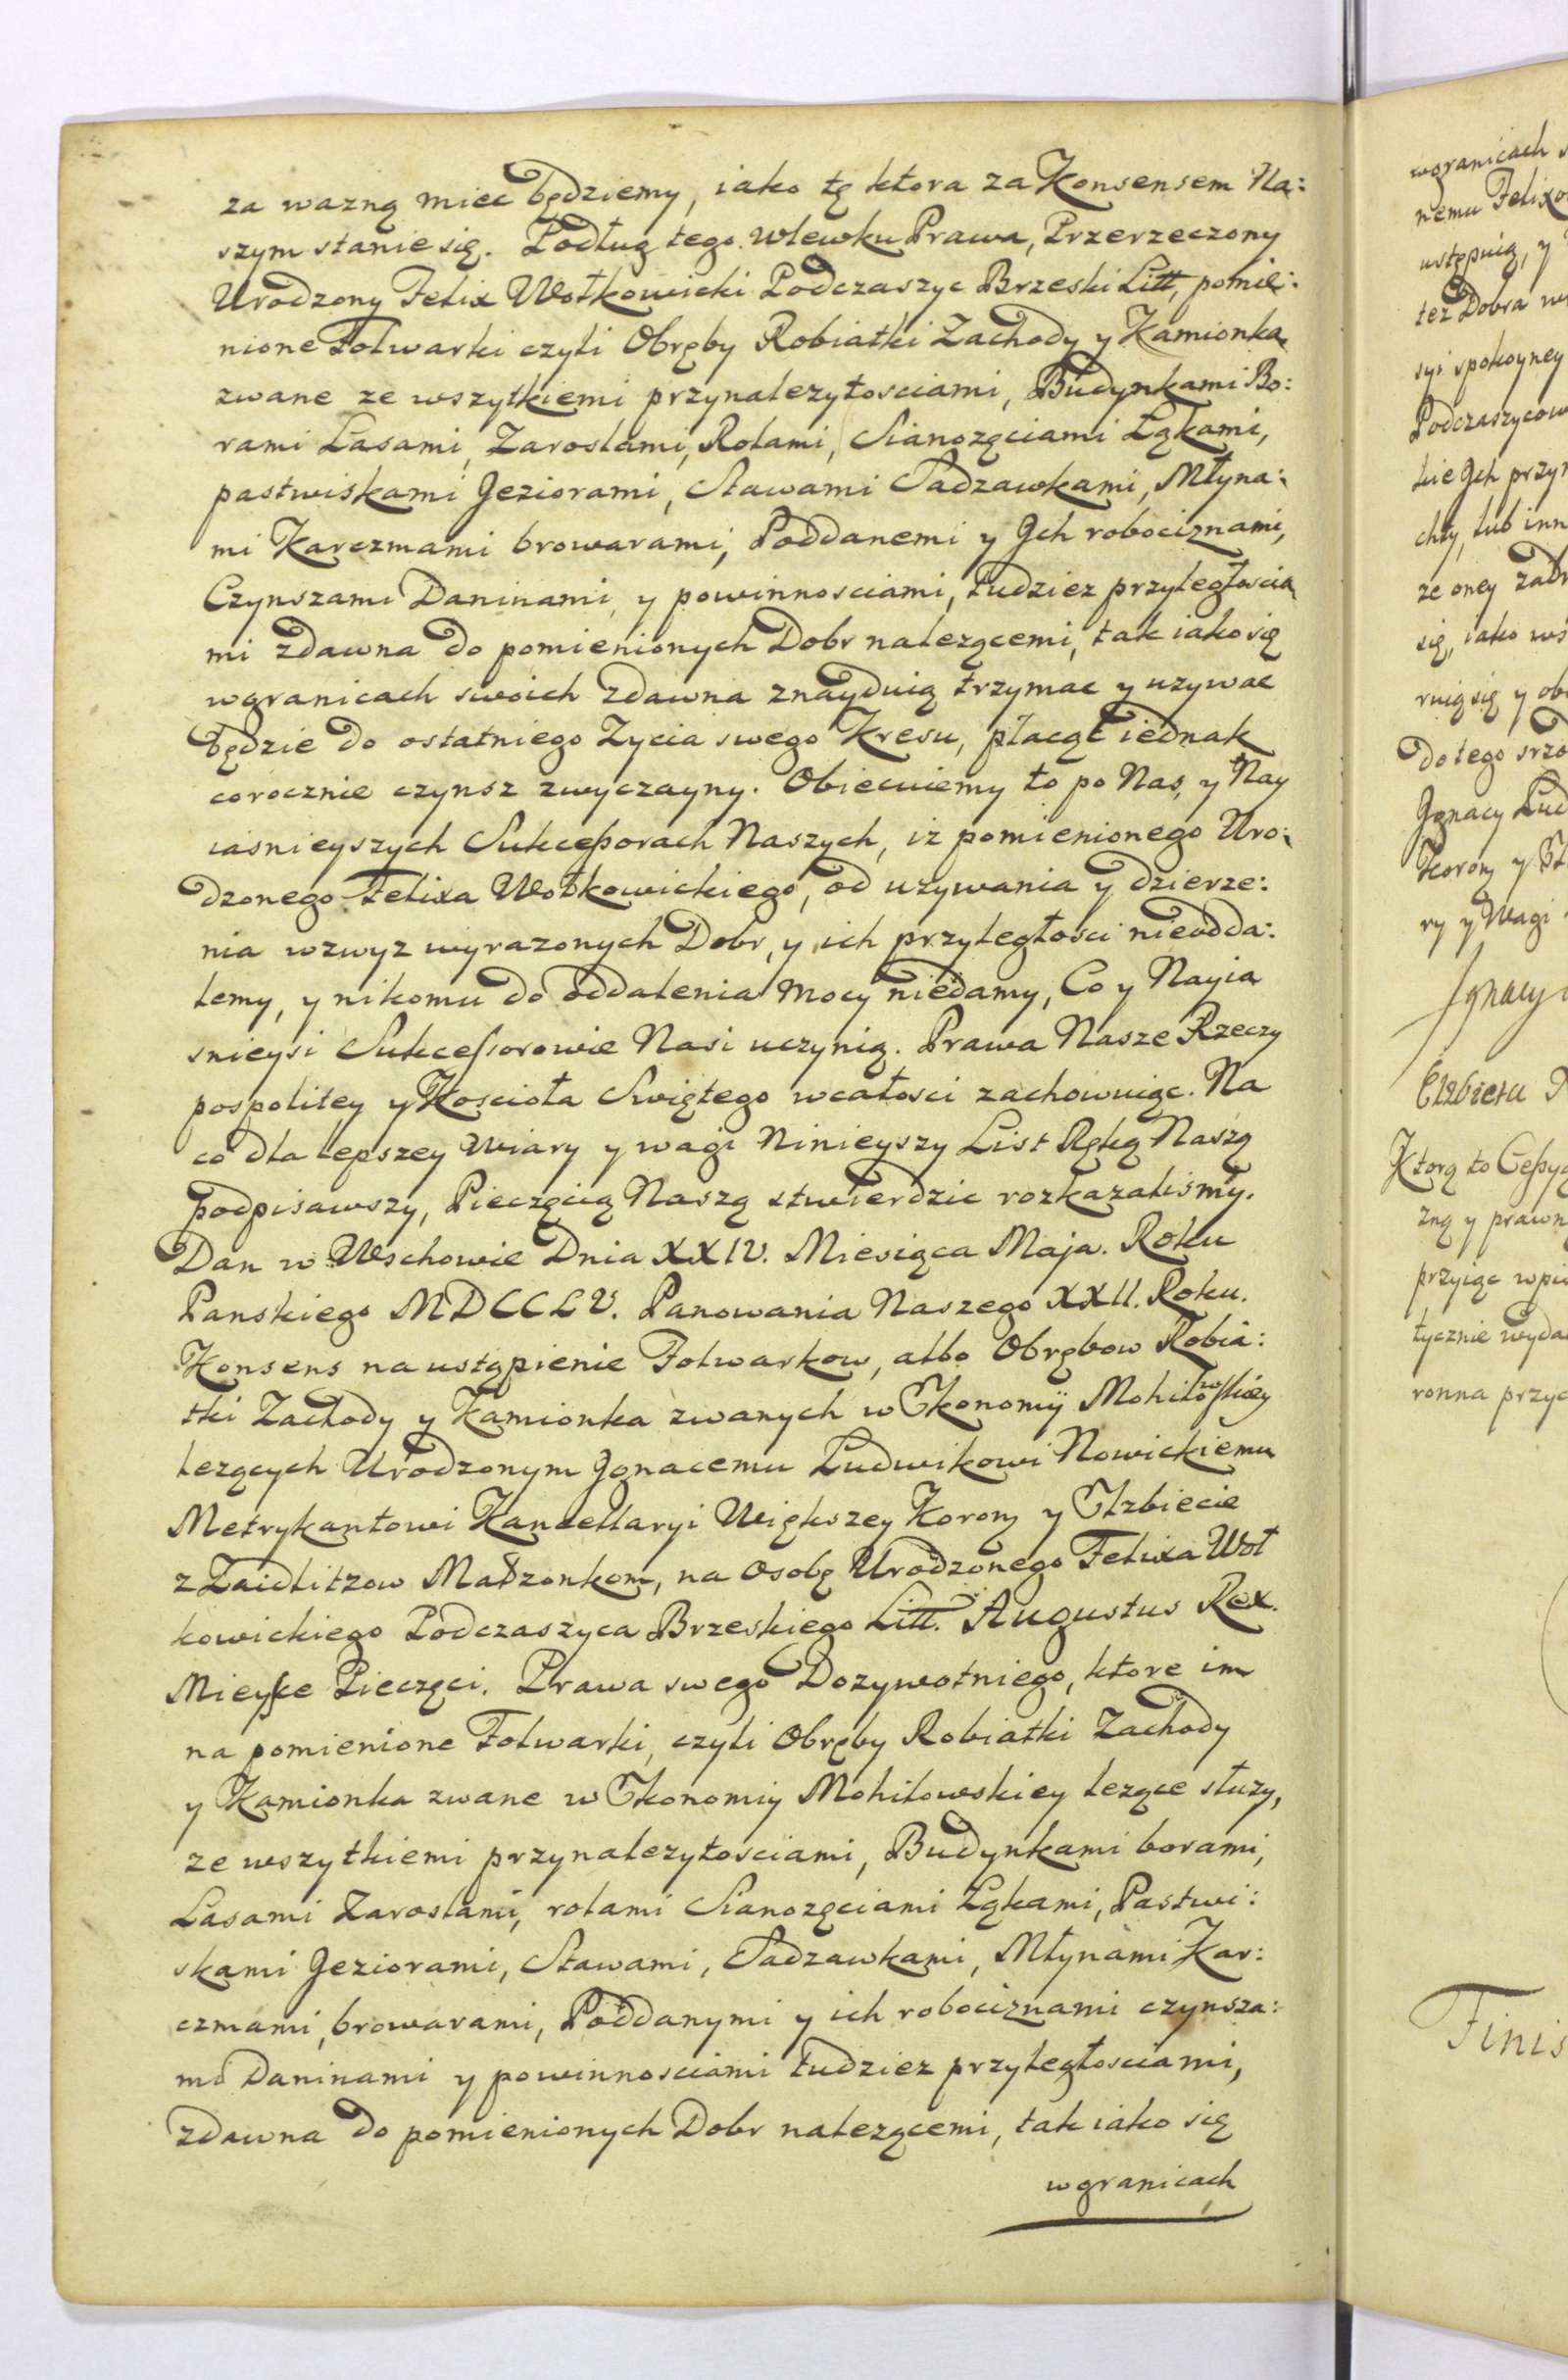 za wazną miec będziemy, iako tę ktora za Konsensem Na:
szym stanie się. Podług tego wlewku Prawa, Przerzeczony
Urodzony Felix Wołkowicki Podczaszyc Brzeski Litt, pomie:
nione Folwarki czyli Obręby Robiatki Zachody y Kamionka
zwane ze wszytkiemi przynalezytosciami, Budynkami Bo:
rami Lasami, Zaroslami, Rolami, Sianozęciami Łąkami,
pastwiskami Jeziorami, Stawami Sadzawkami, Młyna:
mi Karczmami browarami, Poddanemi y Jch robociznami,
Czynszami Daninami, y powinnosciami, tudziez przyległoscia
mi zdawna do pomienionych Dobr nalezącemi, tak iako się
wgranicach swoich zdawna znayduią trzymac y uzywac
będzie do ostatniego Zycia swego Kresu, płacąc iednak
corocznie czynsz zwyczayny. Obiecuiemy to po Nas, y Nay
iasnieyszych Sukceßorach Naszych, iz pomienionego Uro:
dzonego Felixa Wołkowickiego, od uzywania y dzierze:
nia wzwyz wyrazonych Dobr, y ich przyległosci nieodda:
lemy, y nikomu do oddalenia mocy niedamy, Co y Nayia
snieysi Sukceßorowie Nasi uczynią. Prawa Nasze Rzeczy
pospolitey y Koscioła Swiętego wcałosci zachowuiąc. Na
co dla lepszey Wiary y wagi Ninieyszy List Ręką Naszą
podpisawszy, Pieczęcią Naszą stwierdzic rozkazalismy.
Dan w Wschowie Dnia XXIV. Miesiąca Maja. Roku
Panskiego MDCCLV. Panowania Naszego XXII. Roku.
Konsens na ustąpienie Folwarkow, albo Obrębow Robia:
tki Zachody y Kamionka zwanych w Ekonomij Mohilowskiey
lezących Urodzonym Jgnacemu Ludwikowi Nowickiemu
Metrykantowi Kancellaryi Większey Korony y Elzbiecie
z Zaidlitzow Małzonkom, na Osobę Urodzonego Felixa Woł
kowickiego Podczaszyca Brzeskiego Litt. Augustus Rex.
Mieysce Pieczęci. Prawa swego Dozywotniego, ktore im
na pomienione Folwarki, czyli Obręby Robiatki Zachody
y Kamionka zwane w Ekonomiy Mohilowskiey lezące słuzy,
ze wszytkiemi przynalezytosciami, Budynkami borami,
Lasami Zaroslami, rolami Sianozęciami Łąkami, Pastwi:
skami Jeziorami, Stawami, Sadzawkami, Młynami Kar:
czmami, browarami, Poddanymi y ich robociznami czynsza:
mi Daninami y powinnosciami tudziez przyległosciami,
zdawna do pomienionych Dobr nalezącemi, tak iako się
wgranicach
wgranicach
nemu
ustępuią, y
tez Dobra
syi spokoyney
kie Jch
chty, lub
ze oney
się, iako
ruią się y
Do tego
Jgnacy
Korony y
ry y Wagi
Ignacy
Elzbieta
Ktorą to
zną y
przyiąc
tycznie
ronna
Finis